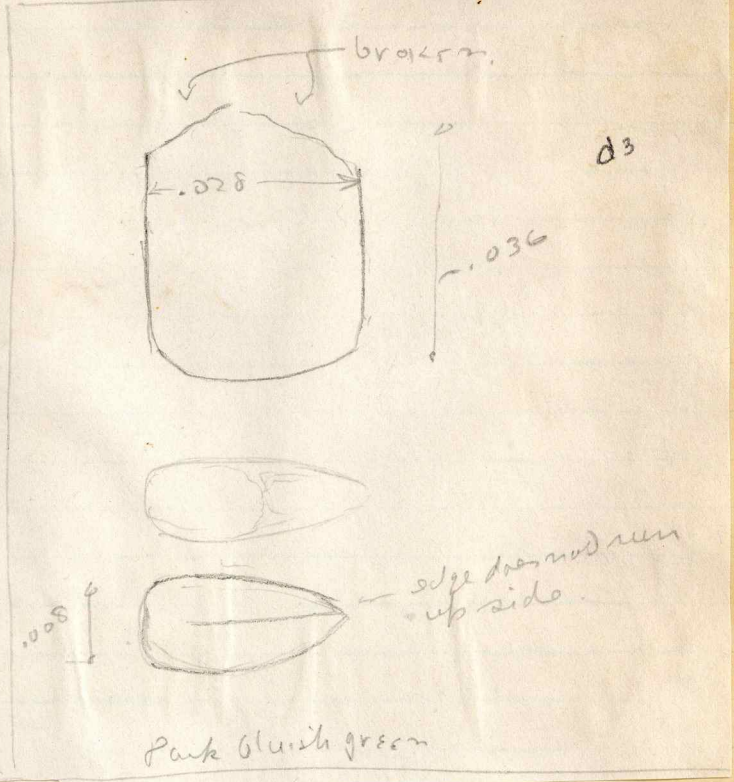 broken.
d3
.028
.036
edge does not run
up side.
.008
Dark bluish green